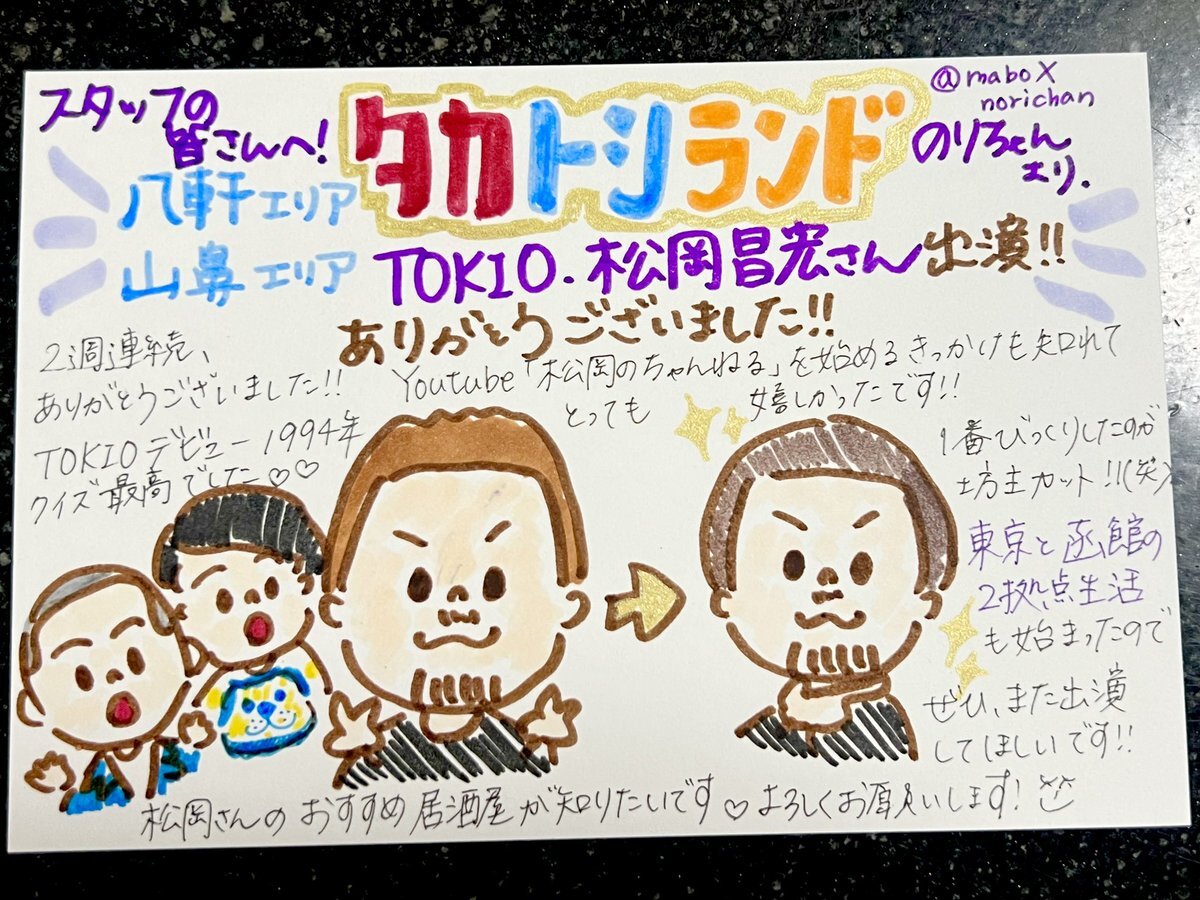 スタッフの
皆さんへ!
タカトシランド
@maboX
norichan
のりちゃん
より.
八軒エリア
山鼻エリア
TOKIO.松岡昌宏さん出演!!
ありがとうございました!!
2週連続、
ありがとうございました!!
TOKIOデビュー1994年
クイズ最高でした♡♡
Youtube「松岡のちゃんねる」を始めるきっかけも知れて
とっても嬉しかったです!!
1番びっくりしたのが
坊主カット!!(笑)
東京と函館の
2拠点生活
も始まったので
ぜひ、また出演
してほしいです!!
松岡さんのおすすめ居酒屋が知りたいです♡よろしくお願いします!